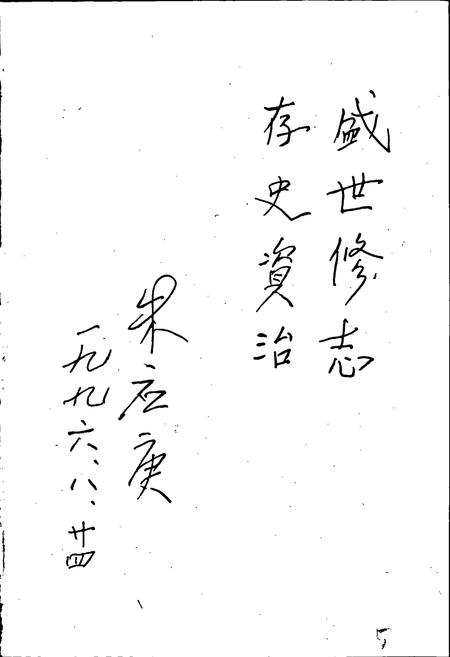 盛世修志
存史資治
朱应庚
一九九六、八、廿四
5